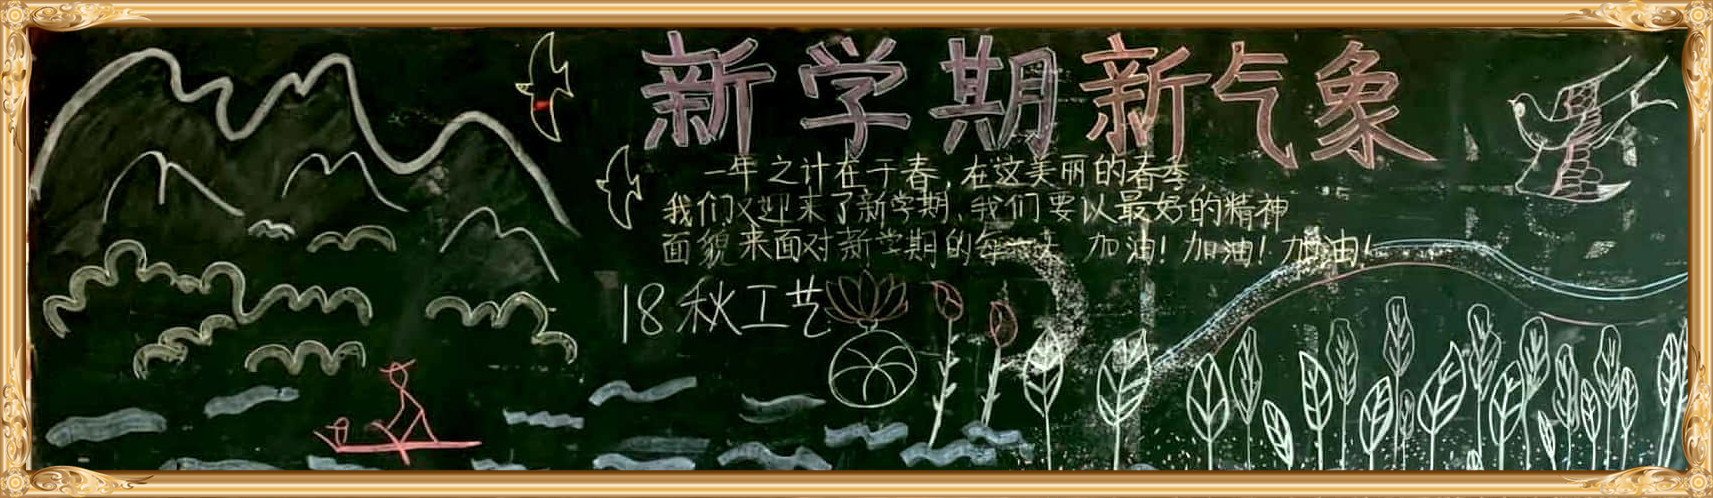 新学期新气象
一年之计在于春,在这美丽的春季,
我们又迎来了新学期、我们要以最好的精神
面貌来面对新学期的每一天 加油!加油!加油!
18秋工艺